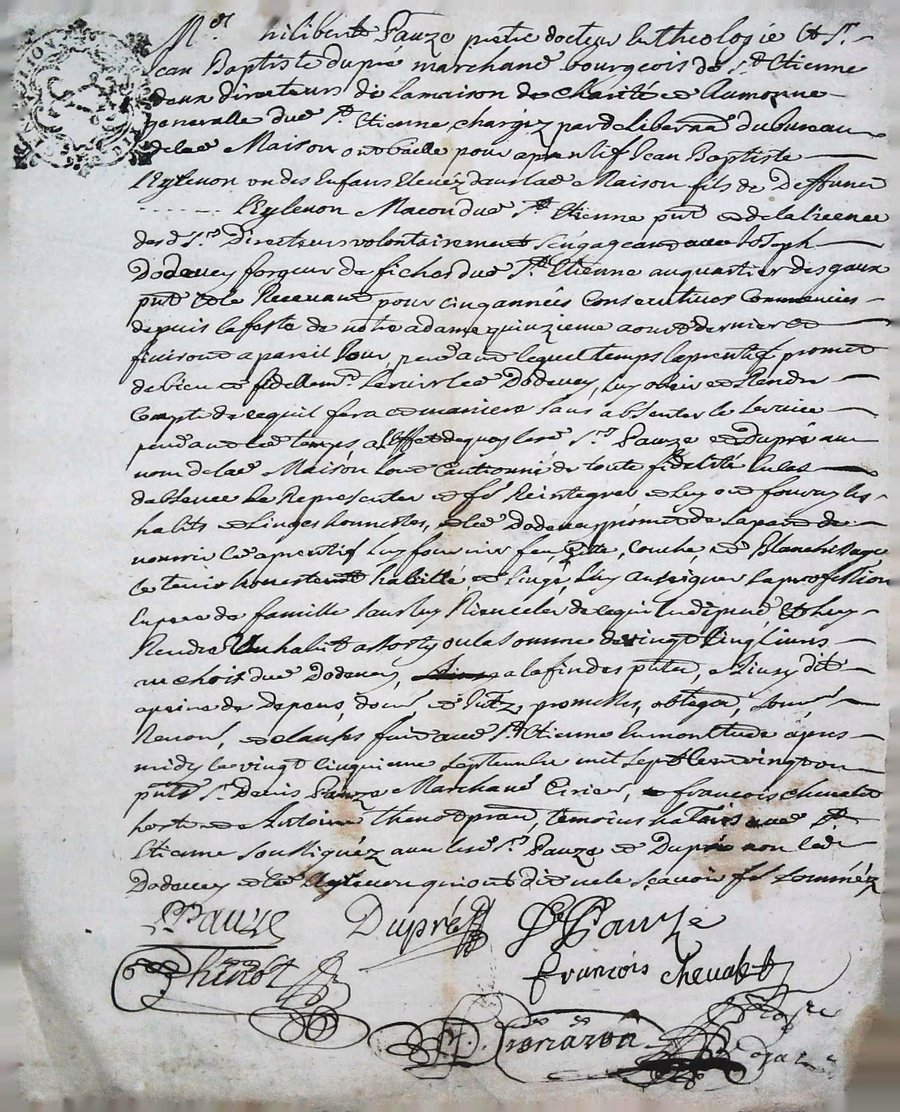 philibert Pauze pretre docteur en theologie et Sr
Jean Baptiste dupré marchand bourgeois de St Etienne
deux directeurs de la maison de Charité et Aumosne
generalle dud St Etienne, chargez par deliberaõn du bureau
de lad Maison ont baillé pour aprentif Jean Baptiste
un des Enfans Elevéz dans lad Maison fils de deffunct
Macon dud St Etienne pnt et de la licence
desd Srs Directeurs volontairement s'engageant avec Joseph
Dodevey forgeur de fiches dud St Etienne au quartier des gaux
pnt et le Recevant pour cinq années Consecutives Commencées
depuis la feste de notre dame quinzieme aoust dernier et
finiront a pareil Jour pendant lequel temps laprentif promet
de bien et fidellemt servir led Dodevey, luy obeir et Rendre
Compte de ce quil fera et maniera sans absenter le service
pendant led temps a l'effet de quoy lesd Srs Pauze et Dupré au
nom de lad Maison lont Cautionné de toute fidelité En cas
dabsence le Representer et fe Reintegrer et luy ont fourny les
habits et Linges honnestes, et led Dodevey promet de sa part de
nourrir led aprentif luy fournir feu, gite, couche et Blanchissage
le tenir honestement habillé et lingé luy enseigner sa profession
En pere de famille sans luy Rien celer de ce qui En depend Et luy
Rendre Un habit assorty ou la somme de vingt Cinq livres
au choix dud Dodevey, a la fin des pntes,
a peine de depens, dom et
Renonẽ, et clauses fait aud St Etienne En mon Etude apres
midy le vingt cinquieme Septembre mil sept cent vingt
pnts Sr Denis Pauze Marchand Cirier, et francois chevalet
hoste et Antoine thenot pratn temoins habitants aud St
Etienne soussignéz avec lesd Srs Pauze et Dupré non led
Dodevey et led qui ont dit ne le scavoir fe sommez
P Pauze Dupré D Pauze
thenot francois chevalet